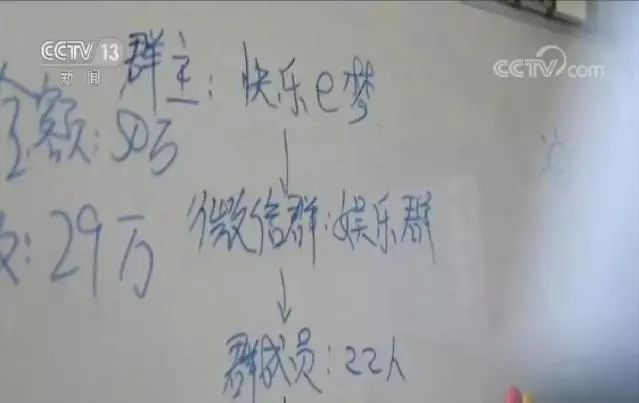 CCTV 13
新闻
CCTV.com
群主：快乐e梦
金额：50万
微信群：娱乐群
: 29万
群成员：22人